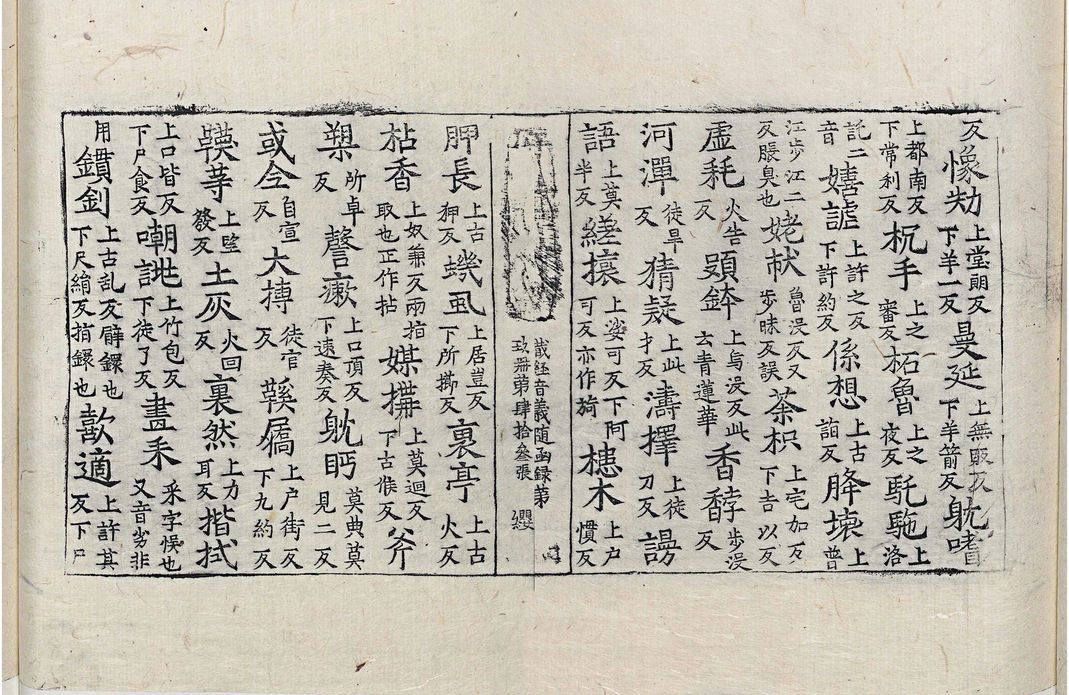 反 劫 上堂朗反下羊一反 曼延 上無販反下羊箭反 躭嗜
上都南反下常利反 枕手 上之審反 柘魯 上之夜反 馲駞 上洛
託二音 嬉謔 上許之反下許約反 係想 上古詣反 胮壞 上普
江步江二反脹臭也 魯沒反又步昧反誤 荼枳 上宅加反下吉以反
虛耗 火告反 頞鉢 上烏沒反此云青蓮華 香馞 步沒反
河潬 徒旱反 猜疑 上此才反 濤擇 上徒刀反 謾
語 上莫半反 縒 上娑可反下阿可反亦作旑 槵木 上戶慣反
藏經音義隨函録第玖冊第肆拾叁張 纓
胛長 上古狎反 蟣虱 上居豈反下所擳反 裹亭 上古火反
枮香 上奴兼反又兩指取也正作拈 媒 上莫迴反下古候反 斧
槊 所卓反 謦瘶 上口頂反下速奏反 躭眄 莫典莫見二反
或 自宣反 大摶 徒官反 鞵屩 上戶街反下九約反
韈䓁 上望發反 土灰 火回反 裏然 上力耳反 揩拭
上口皆反下尸食反 嘲 上竹包反下徒了反 盡釆 釆字悞也又音劣非
用 釧 上古乱反臂鐶也下尺絹反指鐶也 歆適 上許其反下尸